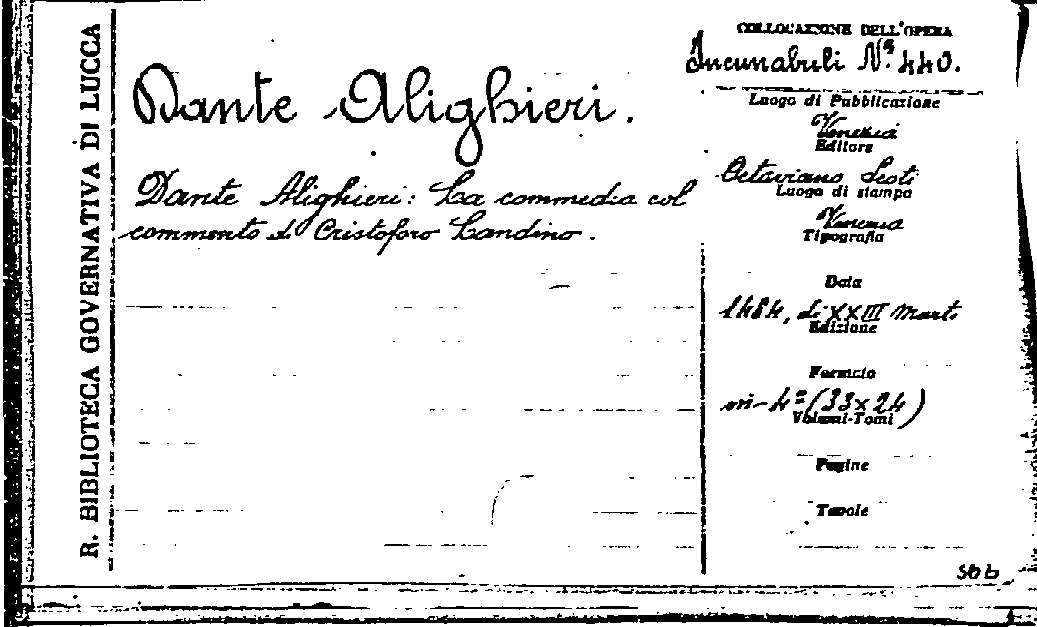 R. BIBLIOTECA GOVERNATIVA DI LUCCA
Dante Alighieri.
Dante Alighieri: La commedia col
commento di Cristoforo Landino.
COLLOCAZIONE DELL'OPERA
Incunabuli N.º 440.
Luogo di Pubblicazione
Venezia
Editore
Octaviano Scoti
Luogo di stampa
Venezia
Tipografia
Data
1484, di XXIII Marti
Edizione
Formato
in-4º (33x24)
Volumi-Tomi
Pagine
Tavole